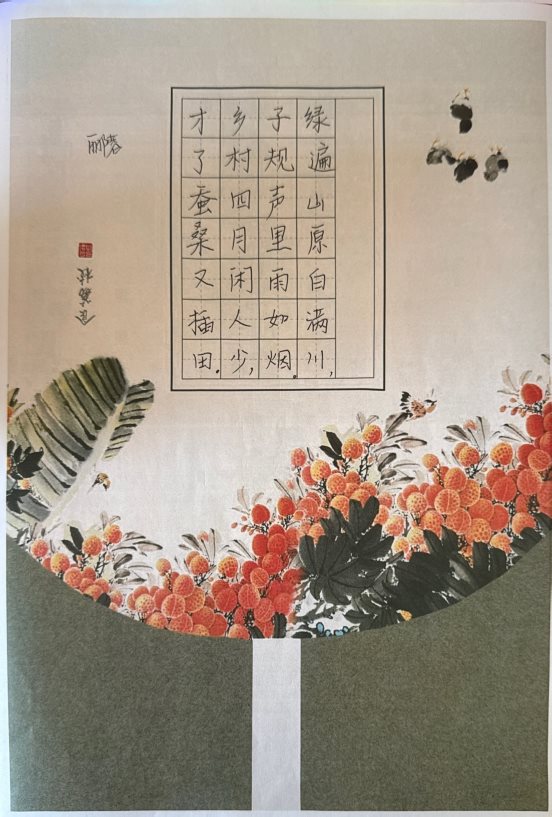 绿遍山原白满川,
子规声里雨如烟。
乡村四月闲人少,
才了蚕桑又插田.